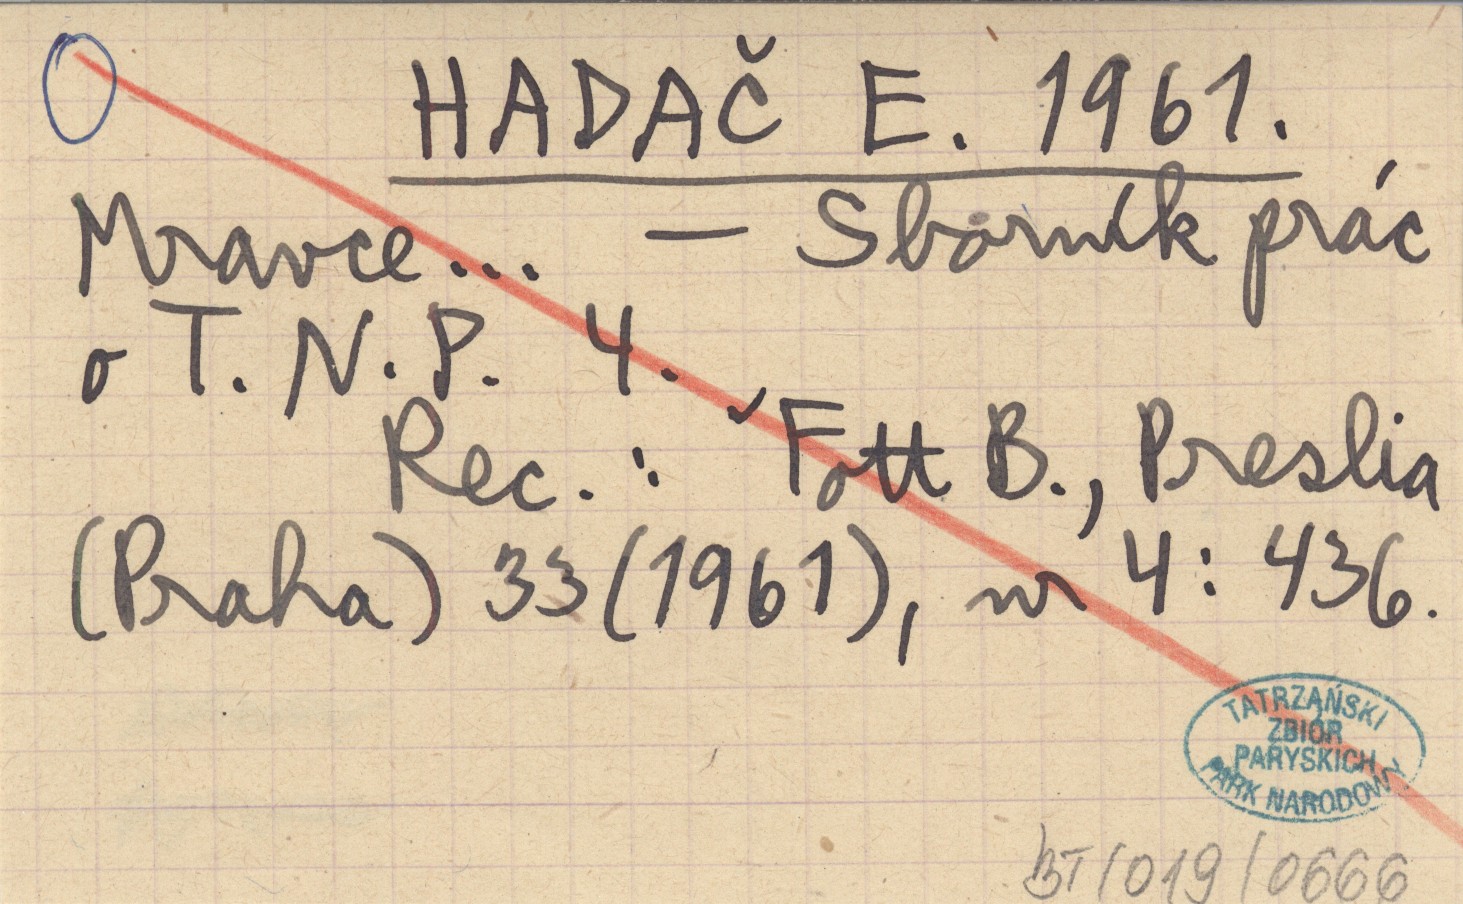 HADAČ E. 1961.
Mravce... — Sborník prác
o T. N. P. 4.
Rec. : Fott B., Preslia
(Praha) 33 (1961), nr 4: 436.
TATRZAŃSKI
ZBIÓR
PARYSKICH
PARK NARODOWY
BT/019/0666